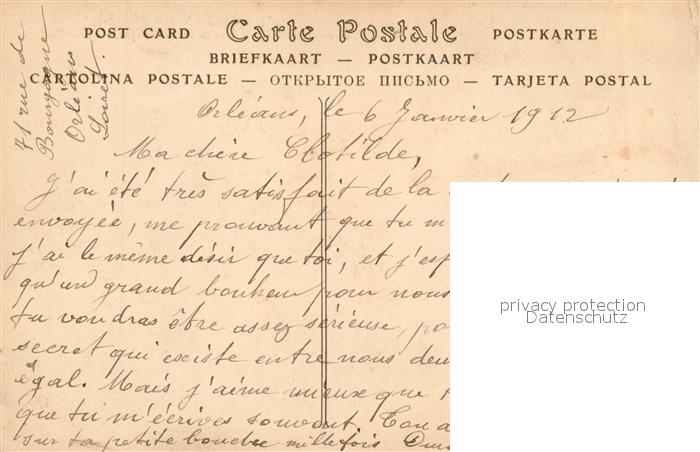 POST CARD Carte Postale POSTKARTE
BRIEFKAART — POSTKAART
CARTOLINA POSTALE — ОТКРЫТОЕ ПИСЬМО — TARJETA POSTAL
71 rue de
Bourgogne
Orléans
Loiret.
Orléans, le 6 Janvier 1912
Ma chère Clotilde,
J'ai été très satisfait de la
envoyée, me prouvant que tu m
j'ai le même désir que toi, et j'esp
qu'un grand bonheur pour nous
tu voudras être assez sérieuse, po
secret qui existe entre nous deu
égal. Mais j'aime mieux que t
que tu m'écrives souvent. Ton a
sur ta petite bouche mille fois
privacy protection
Datenschutz